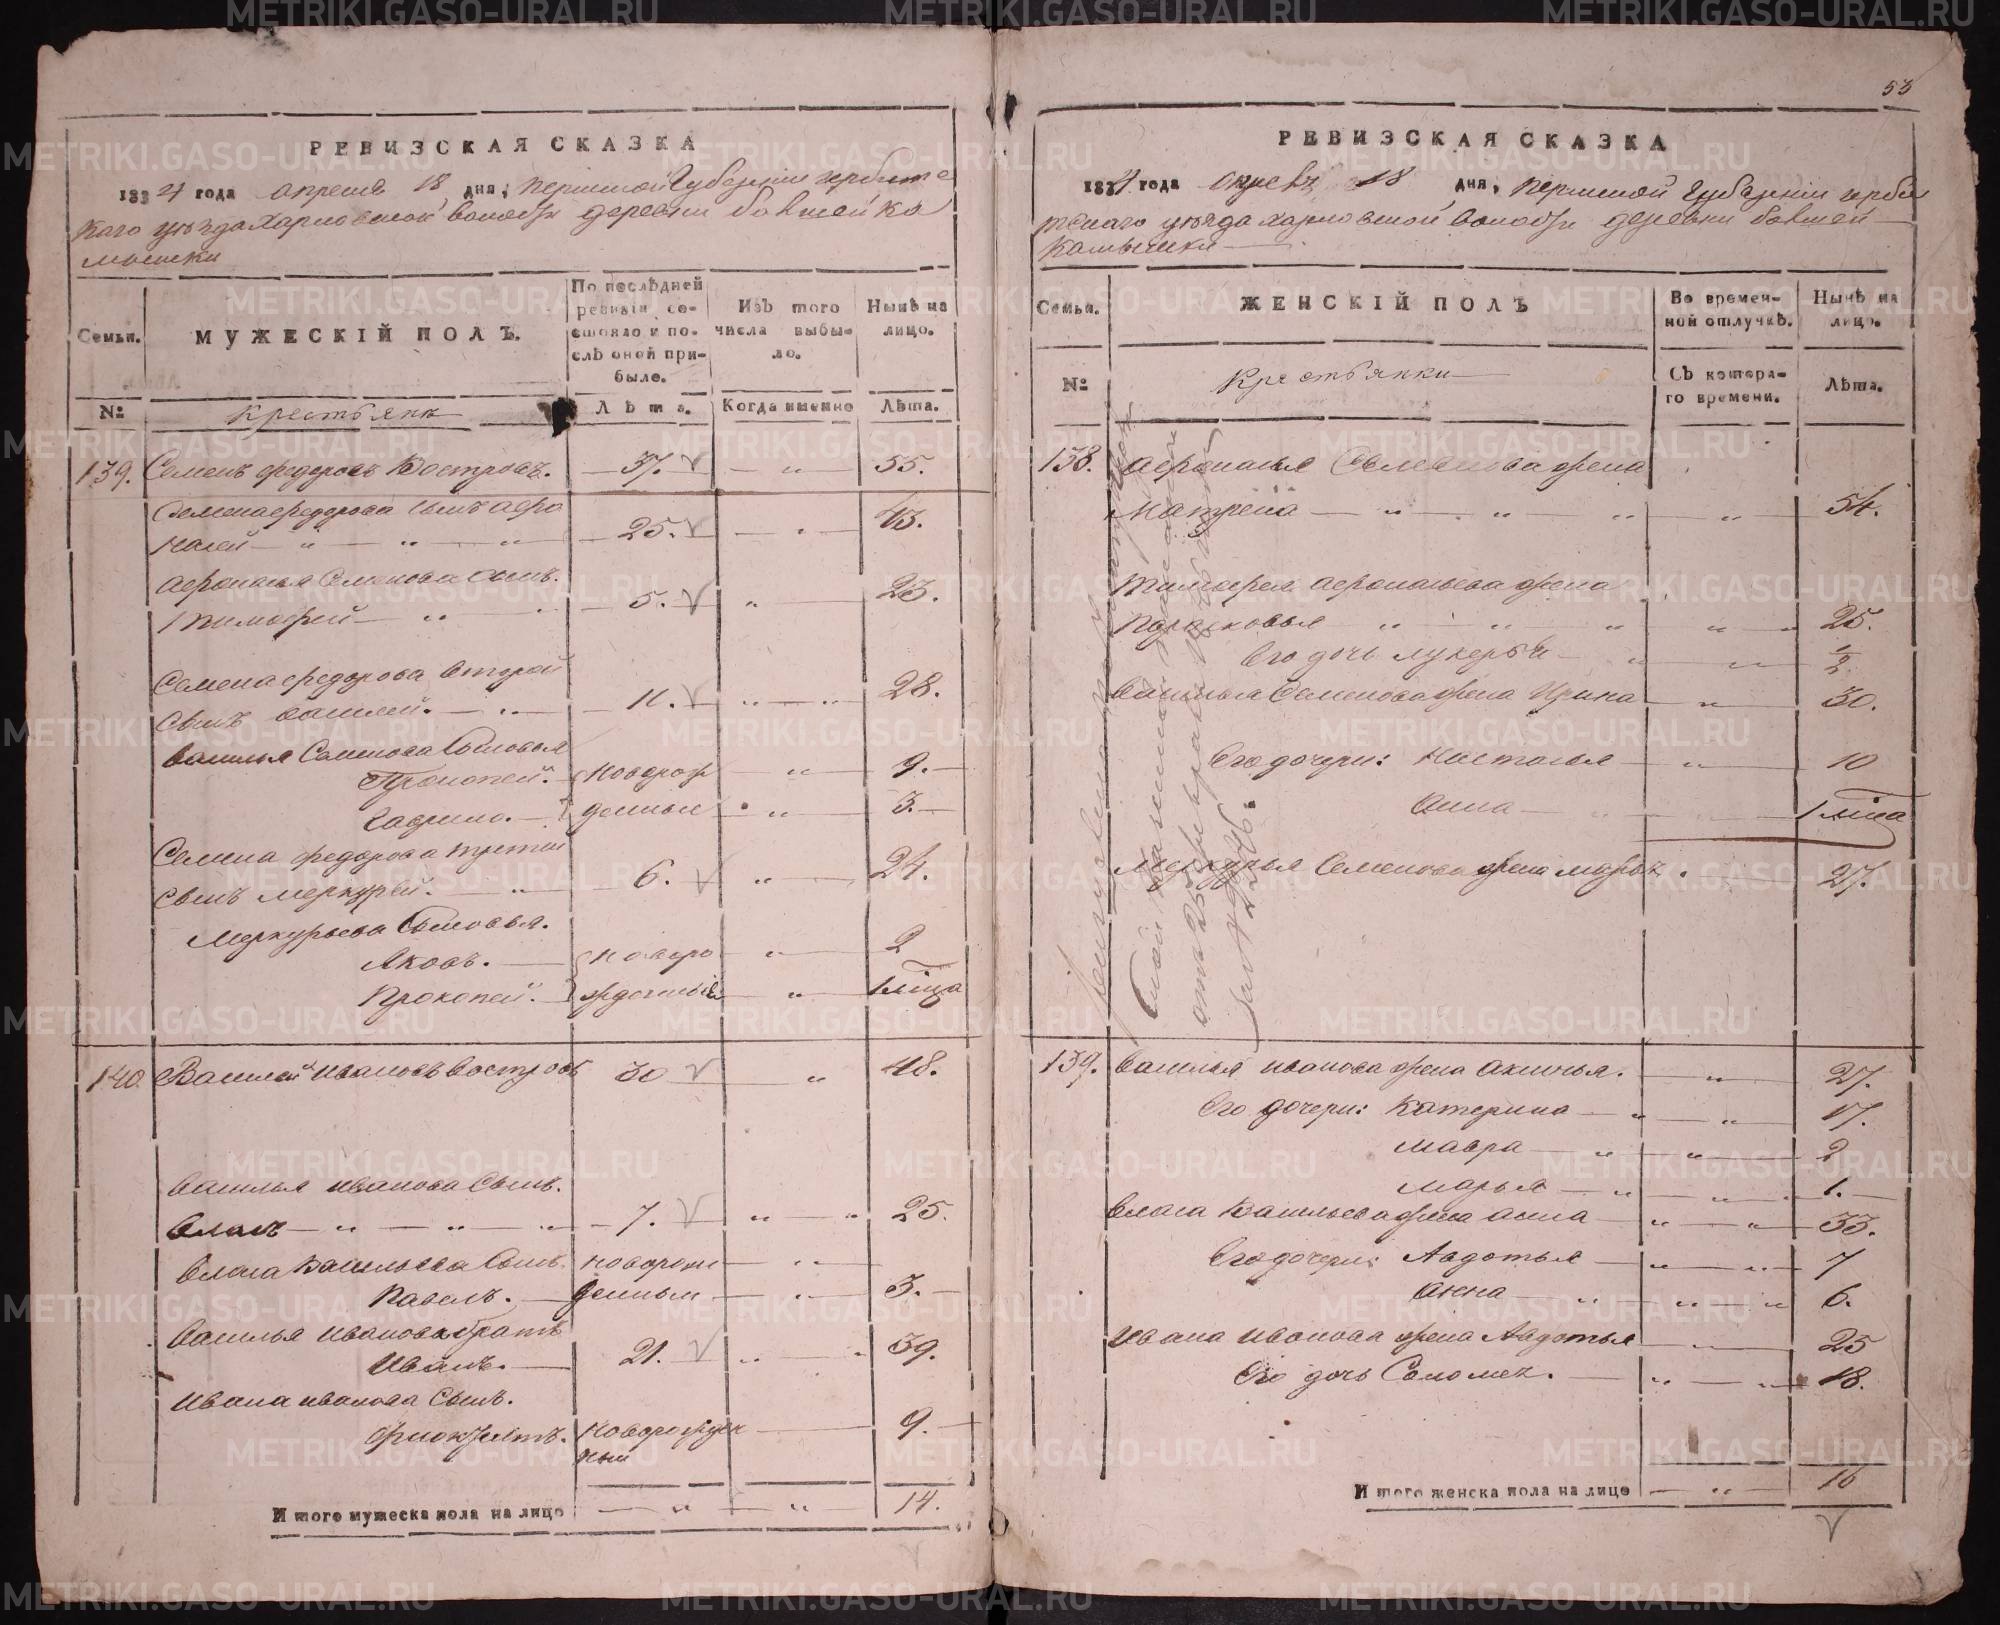 53
РЕВИЗСКАЯ СКАЗКА
1834 года апреля 18 дня, Пермской Губернии ирбитс
каго уезда Харловской Волости деревни бовшей Ка
мышки
Семьи.
МУЖЕСКІЙ ПОЛЪ.
По послѣдней ревизіи состояло и послѣ оной прибыло.
Изъ того числа выбыло.
Нынѣ на лицо.
№
Крестьяня
Лѣта.
Когда именно
Лѣта.
139. Семенъ федоровъ Востровъ. 37. 55.
Семена федорова сынъ афо
насей 25. 43.
афонасья Семенова сынъ.
Тимофей 5. 23.
Семена федорова второй
сынъ василей. 11. 28.
василья Семенова Сыновья
Прокопей. новорож 9.
Гаврило. денные 3.
Семена федорова третей
сынъ меркурей. 6. 24.
Меркурьева Сыновья.
Яковъ. новоро 2
Прокопей. жденные 1 мѣсца
140. Василей ивановъ востровъ 30 48.
василья иванова Сынъ.
власъ 7. 25.
власа васильева Сынъ. новорож
Павелъ. денным 3.
василья иванова братъ
Иванъ. 21. 39.
Ивана иванова Сынъ.
новорожден 9.
ный
Итого мужеска пола на лицо 14.
РЕВИЗСКАЯ СКАЗКА
1834 года апреля 18 дня, Пермской Губернии ирби
тскаго уезда харловской волости деревни бовшей
Камышки
Семьи.
ЖЕНСКІЙ ПОЛЪ
Во временной отлучкѣ.
Нынѣ на лицо.
№
Крестьянки
Съ которого времени.
Лѣта.
138. афонасья Семенова жена
Матрена 54.
Тимофея афонасьева жена
Парасковья 25.
Его дочь лукерья 1/2.
василья Семенова жена Ирина 30.
Его дочери: Настасья 10
анна 1 мѣсца
меркурья Семенова жена марья. 27.
139. василья иванова жена акинья. 27.
Его дочери: Катерина 17.
мавра 2
марья 1.
власа васильева жена анна 33.
Его дочери: Авдотья 7
анна 6.
Ивана иванова жена Авдотья 25
Его дочь Соломея. 18.
Итого женска пола на лицо 16
METRIKI.GASO-URAL.RU